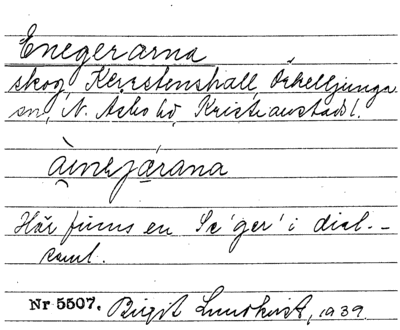 Enegerarna
skog, Kerstenshall, Örkelljunga
sn, N. Asbo hd, Kristianstads l.
àinejá̱rana
Här finns en Se 'ger' i dial.-
saml.
Nr 5507. Birgit Lundkvist, 1939.